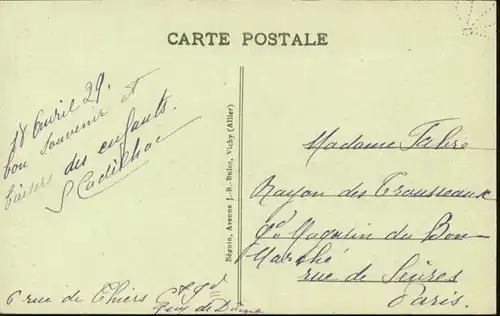 CARTE POSTALE
18 Avril 29.
bon souvenir et
baisers des enfants.
S Cadilhac
6 rue de Thiers
Puy de Dôme
Béguin, Avenue J.-B.-Bulot, Vichy (Allier)
Madame Fabre
Rayon des Trousseaux
Gd Magasin du Bon
Marché
rue de Sèvres
Paris.